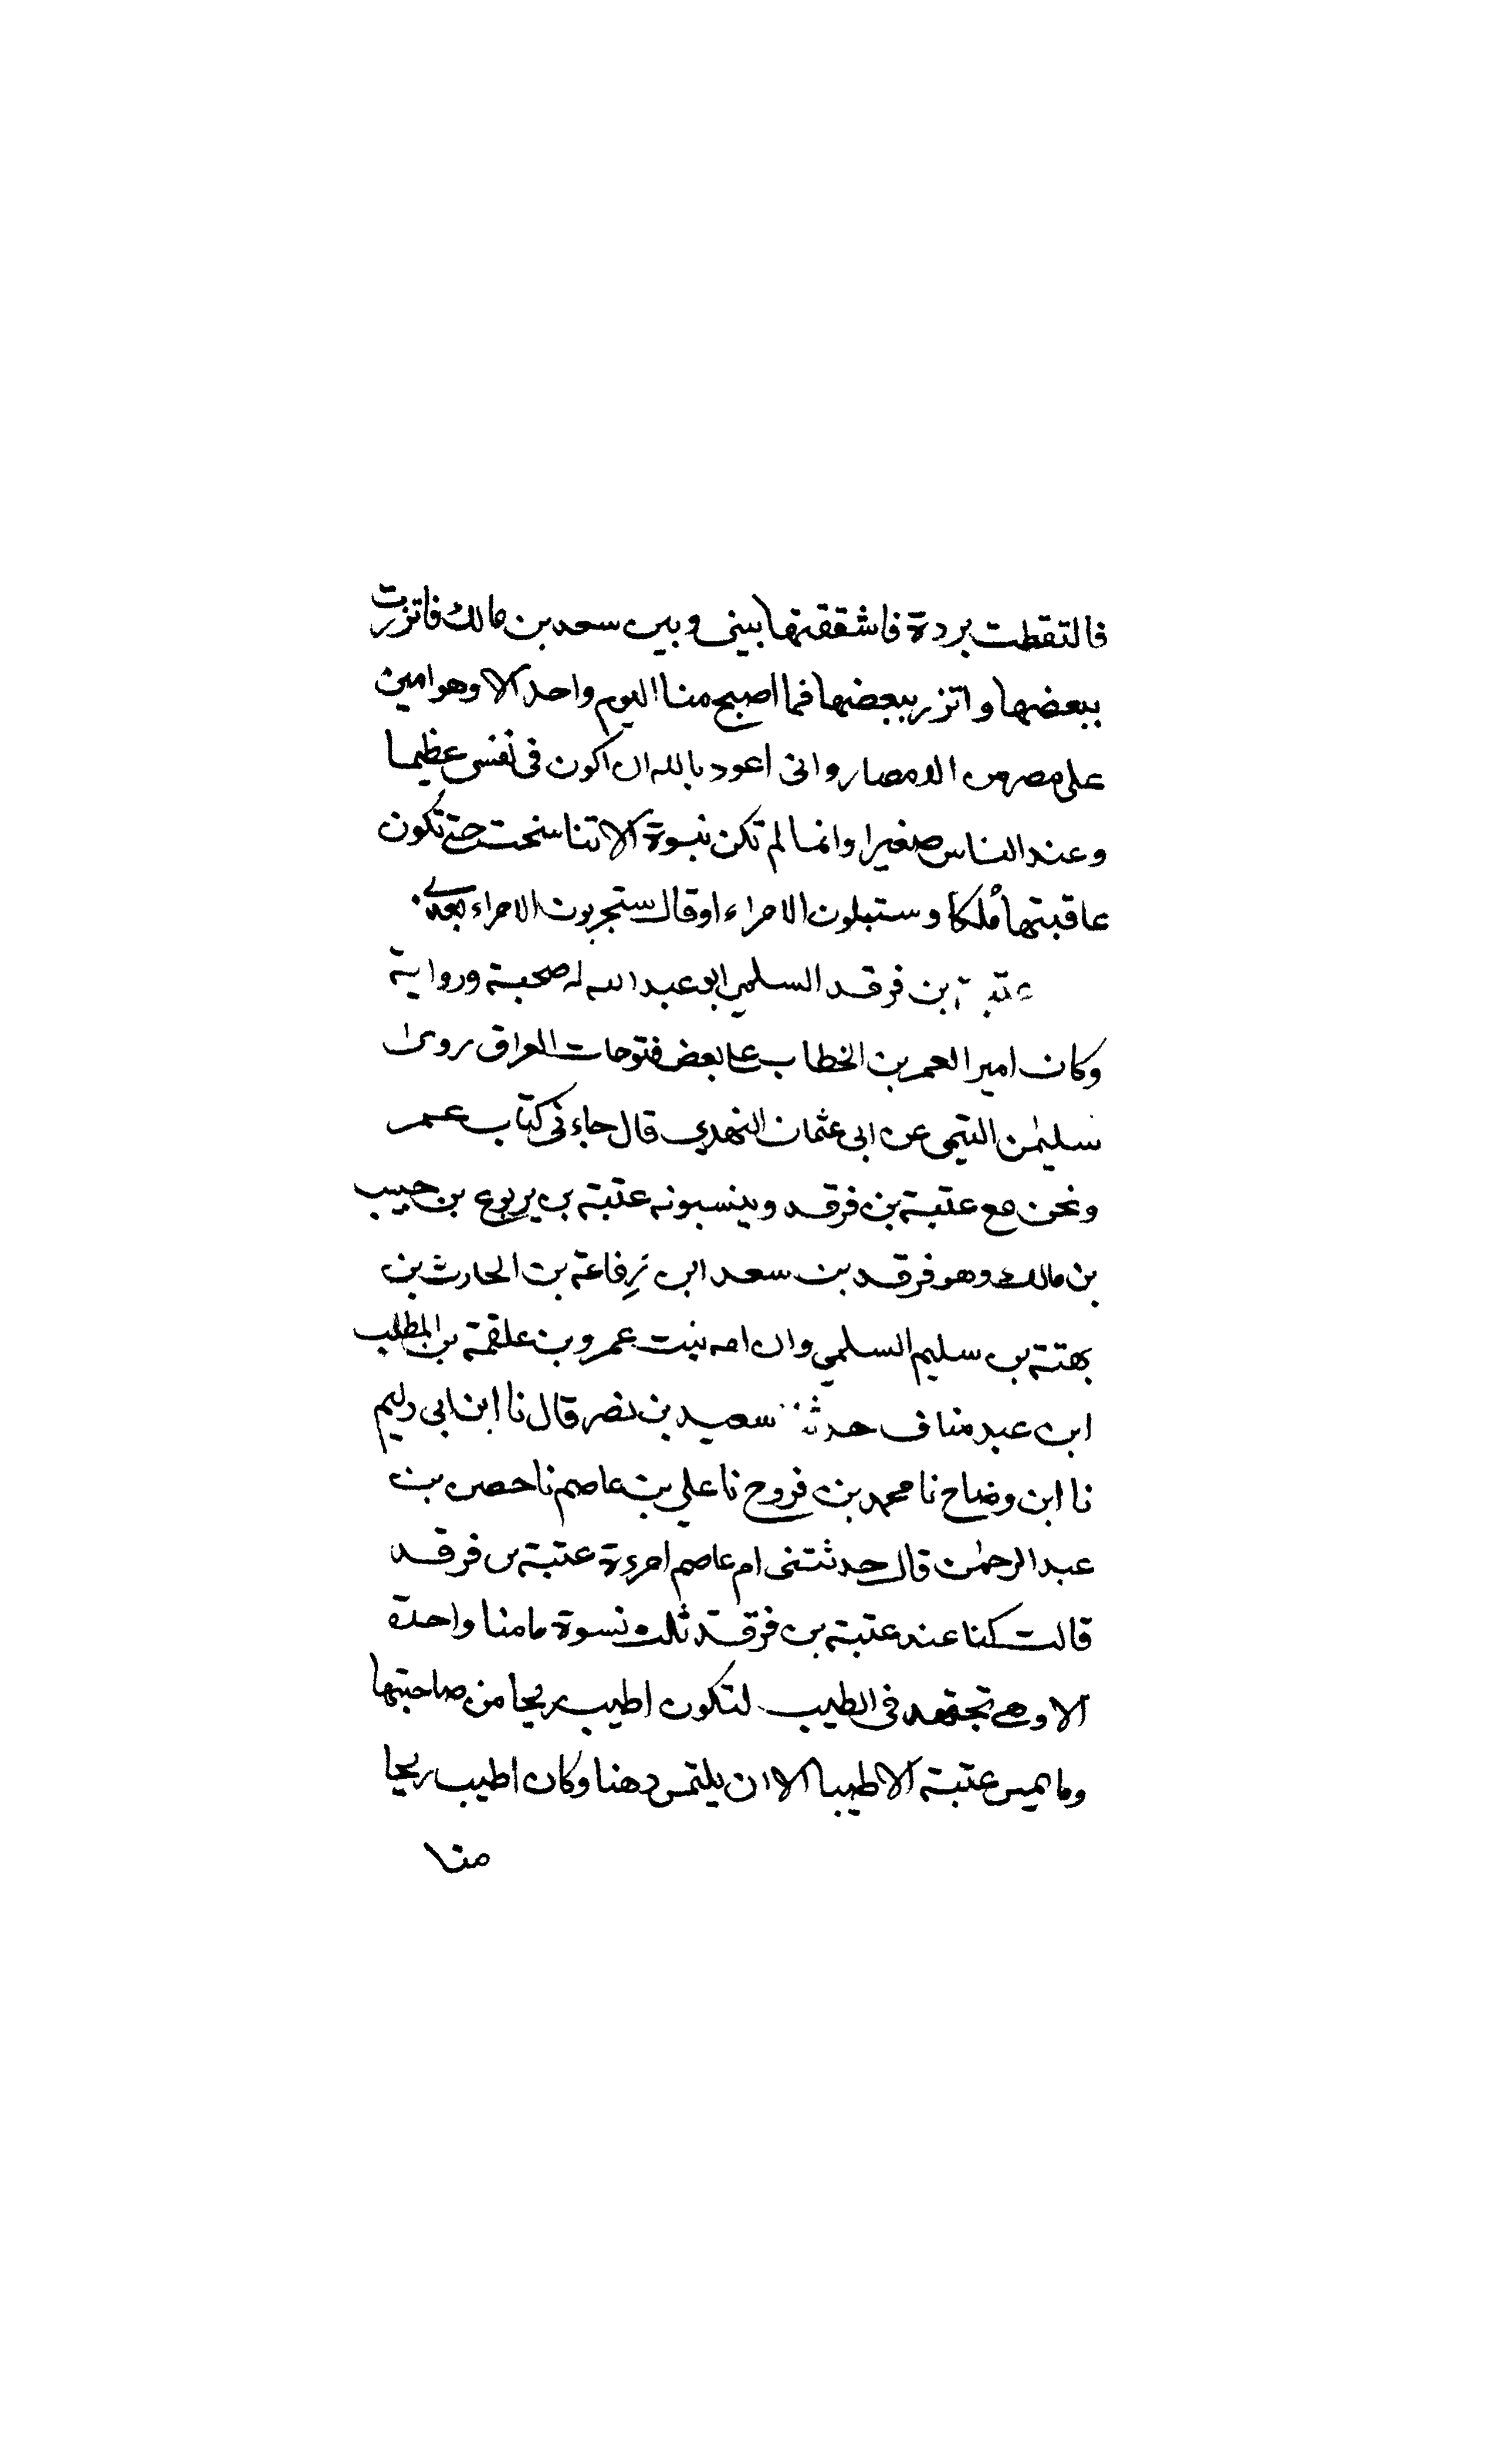 فالتقطت بردة فاشققتها بيني وبين سعد بن مالك فاتزرت
ببعضها واتزر ببعضها فما اصبح منا اليوم واحد الا وهو امين
على مصر من الامصار واني اعود بالله ان اكون في نفسي عظيما
وعند الناس صغيرا وانما لم تكن نبوة الا تناسخت حتى تكون
عاقبتها مُلكا وستبلون الامراء او قال ستجربون الامراء بعدي.
عتبة بن فرقد السلمي ابو عبد الله له صحبة ورواية
وكان اميرا لعمر بن الخطاب على بعض فتوحات العراق روى
سليمٰن التيمي عن ابي عثمان النهدي قال جاءنى كتاب عمر
ونحن مع عتبة بن فرقد وينسبونه عتبة بن يربوع بن حبيب
بن مالك وهو فرقد بن سعد ابن رِفاعة بن الحارث بن
بهتة بن سليم السلمي وان امه بنت عمرو بن علقمة بن المطلب
ابن عبد مناف حدثنا سعيد بن نصر قال نا ابن ابي دليم
نا ابن وضاح نا محمد بن فروح نا علي بن عاصم نا حصن بن
عبد الرحمٰن قال حدثتنى ام عاصم امرءة عتبة بن فرقد
قالت كنا عند عتبة بن فرقد ثلث نسوة مامنا واحدة
الا وهي تجتهد في الطيب لتكون اطيب ريحا من صاحبتها
وما يمس عتبة الا طيبا الا ان يلتمس دهنا وكان اطيب ريحا
منا